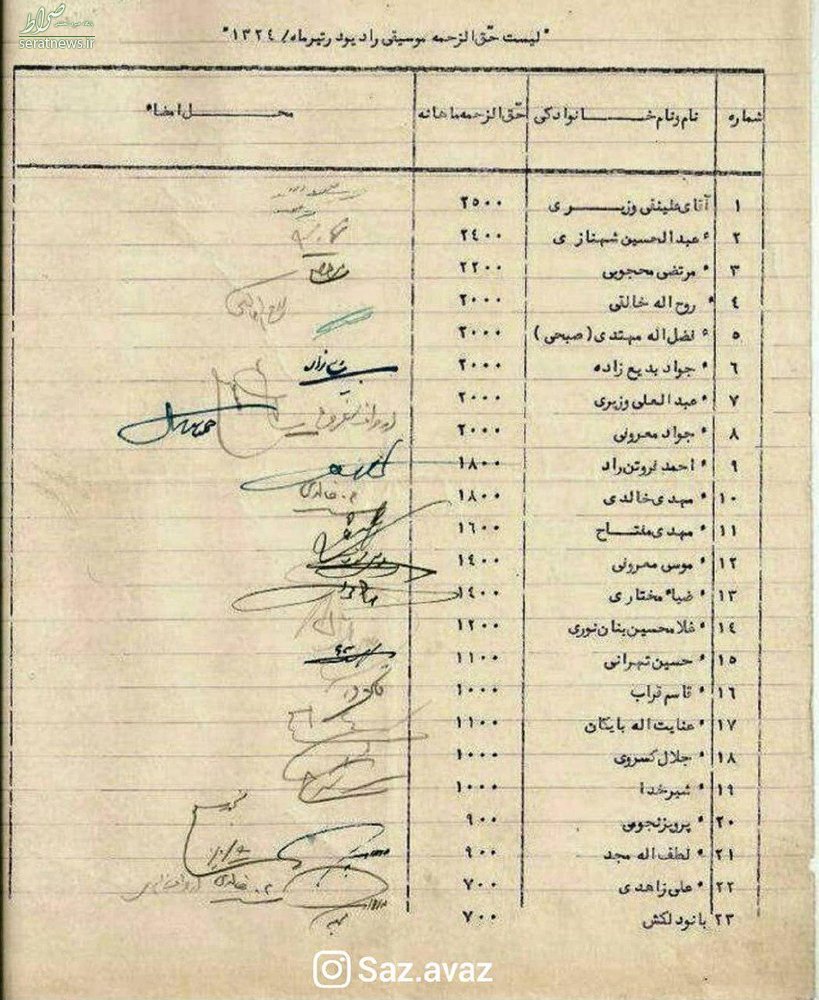 صراط
seratnews.ir
" لیست حقّ الزحمه موسیقی رادیو در تیرماه/ ۱۳۲۴ "
شماره نام و نام خانوادگی حقّ الزحمه ماهانه محل امضاء
۱ آقای علینقی وزیری ۲۵۰۰
۲ " عبدالحسین شهنازی ۲۴۰۰
۳ " مرتضی محجوبی ۲۲۰۰
۴ " روح اله خالقی ۲۰۰۰
۵ " فضل اله مهتدی (صبحی) ۲۰۰۰
۶ " جواد بدیع زاده ۲۰۰۰
۷ " عبدالعلی وزیری ۲۰۰۰
۸ " جواد معروفی ۲۰۰۰
۹ " احمد فروتن راد ۱۸۰۰
۱۰ " مهدی خالدی ۱۸۰۰
۱۱ " مهدی مفتاح ۱۶۰۰
۱۲ " موسی معروفی ۱۴۰۰
۱۳ " ضیاء مختاری ۱۴۰۰
۱۴ " غلامحسین بنان نوری ۱۲۰۰
۱۵ " حسین تهرانی ۱۱۰۰
۱۶ " قاسم قراب ۱۰۰۰
۱۷ " عنایت اله بایکان ۱۱۰۰
۱۸ " جلال کسروی ۱۰۰۰
۱۹ " شیرخدا ۱۰۰۰
۲۰ " پرویز نجومی ۹۰۰
۲۱ " لطف اله مجد ۹۰۰
۲۲ " علی زاهدی ۷۰۰
۲۳ بانو دلکش ۷۰۰
Saz.avaz